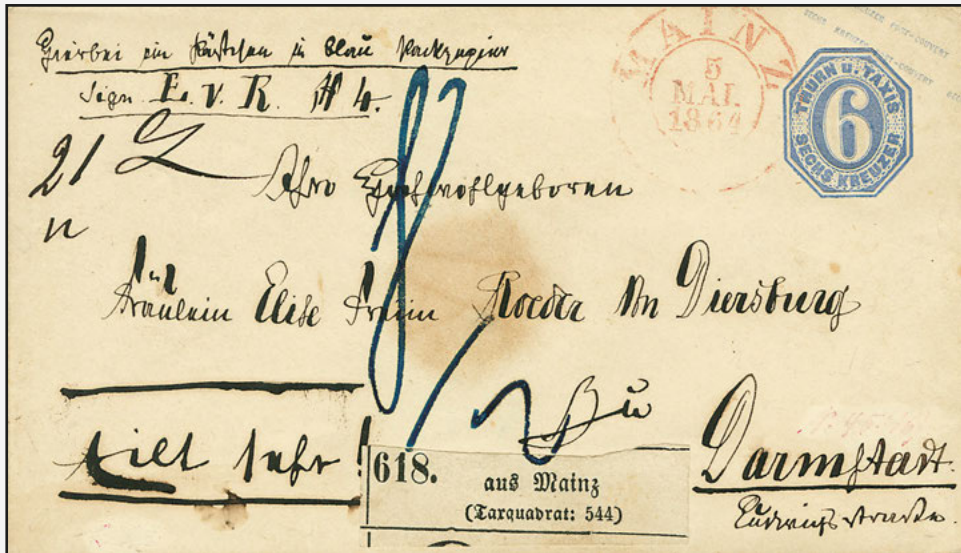 Hierbei ein Kästchen in blau Packpapier
Sign. E. v. R. # 4.
MAINZ
5
MAI
1864
THURN U. TAXIS
6
SECHS KREUZER
21
Ihro Hochwohlgeboren
Fräulein Elise Freiin Roeder von Diersburg
zu
Eilt sehr!
Darmstadt.
618.
aus Mainz
(Taxquadrat: 544)
Ludwigsstraße.